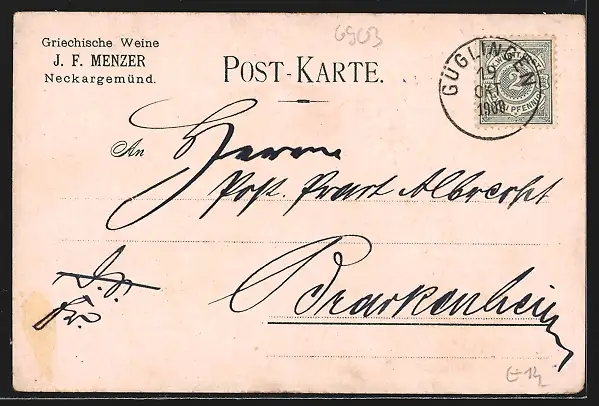 6903
Griechische Weine
J. F. MENZER
Neckargemünd.
POST-KARTE.
GÜGLINGEN
19
OKT
1900
2
PFENNIG
An Herrn
Post. Albrecht
Brackenheim
Fr.